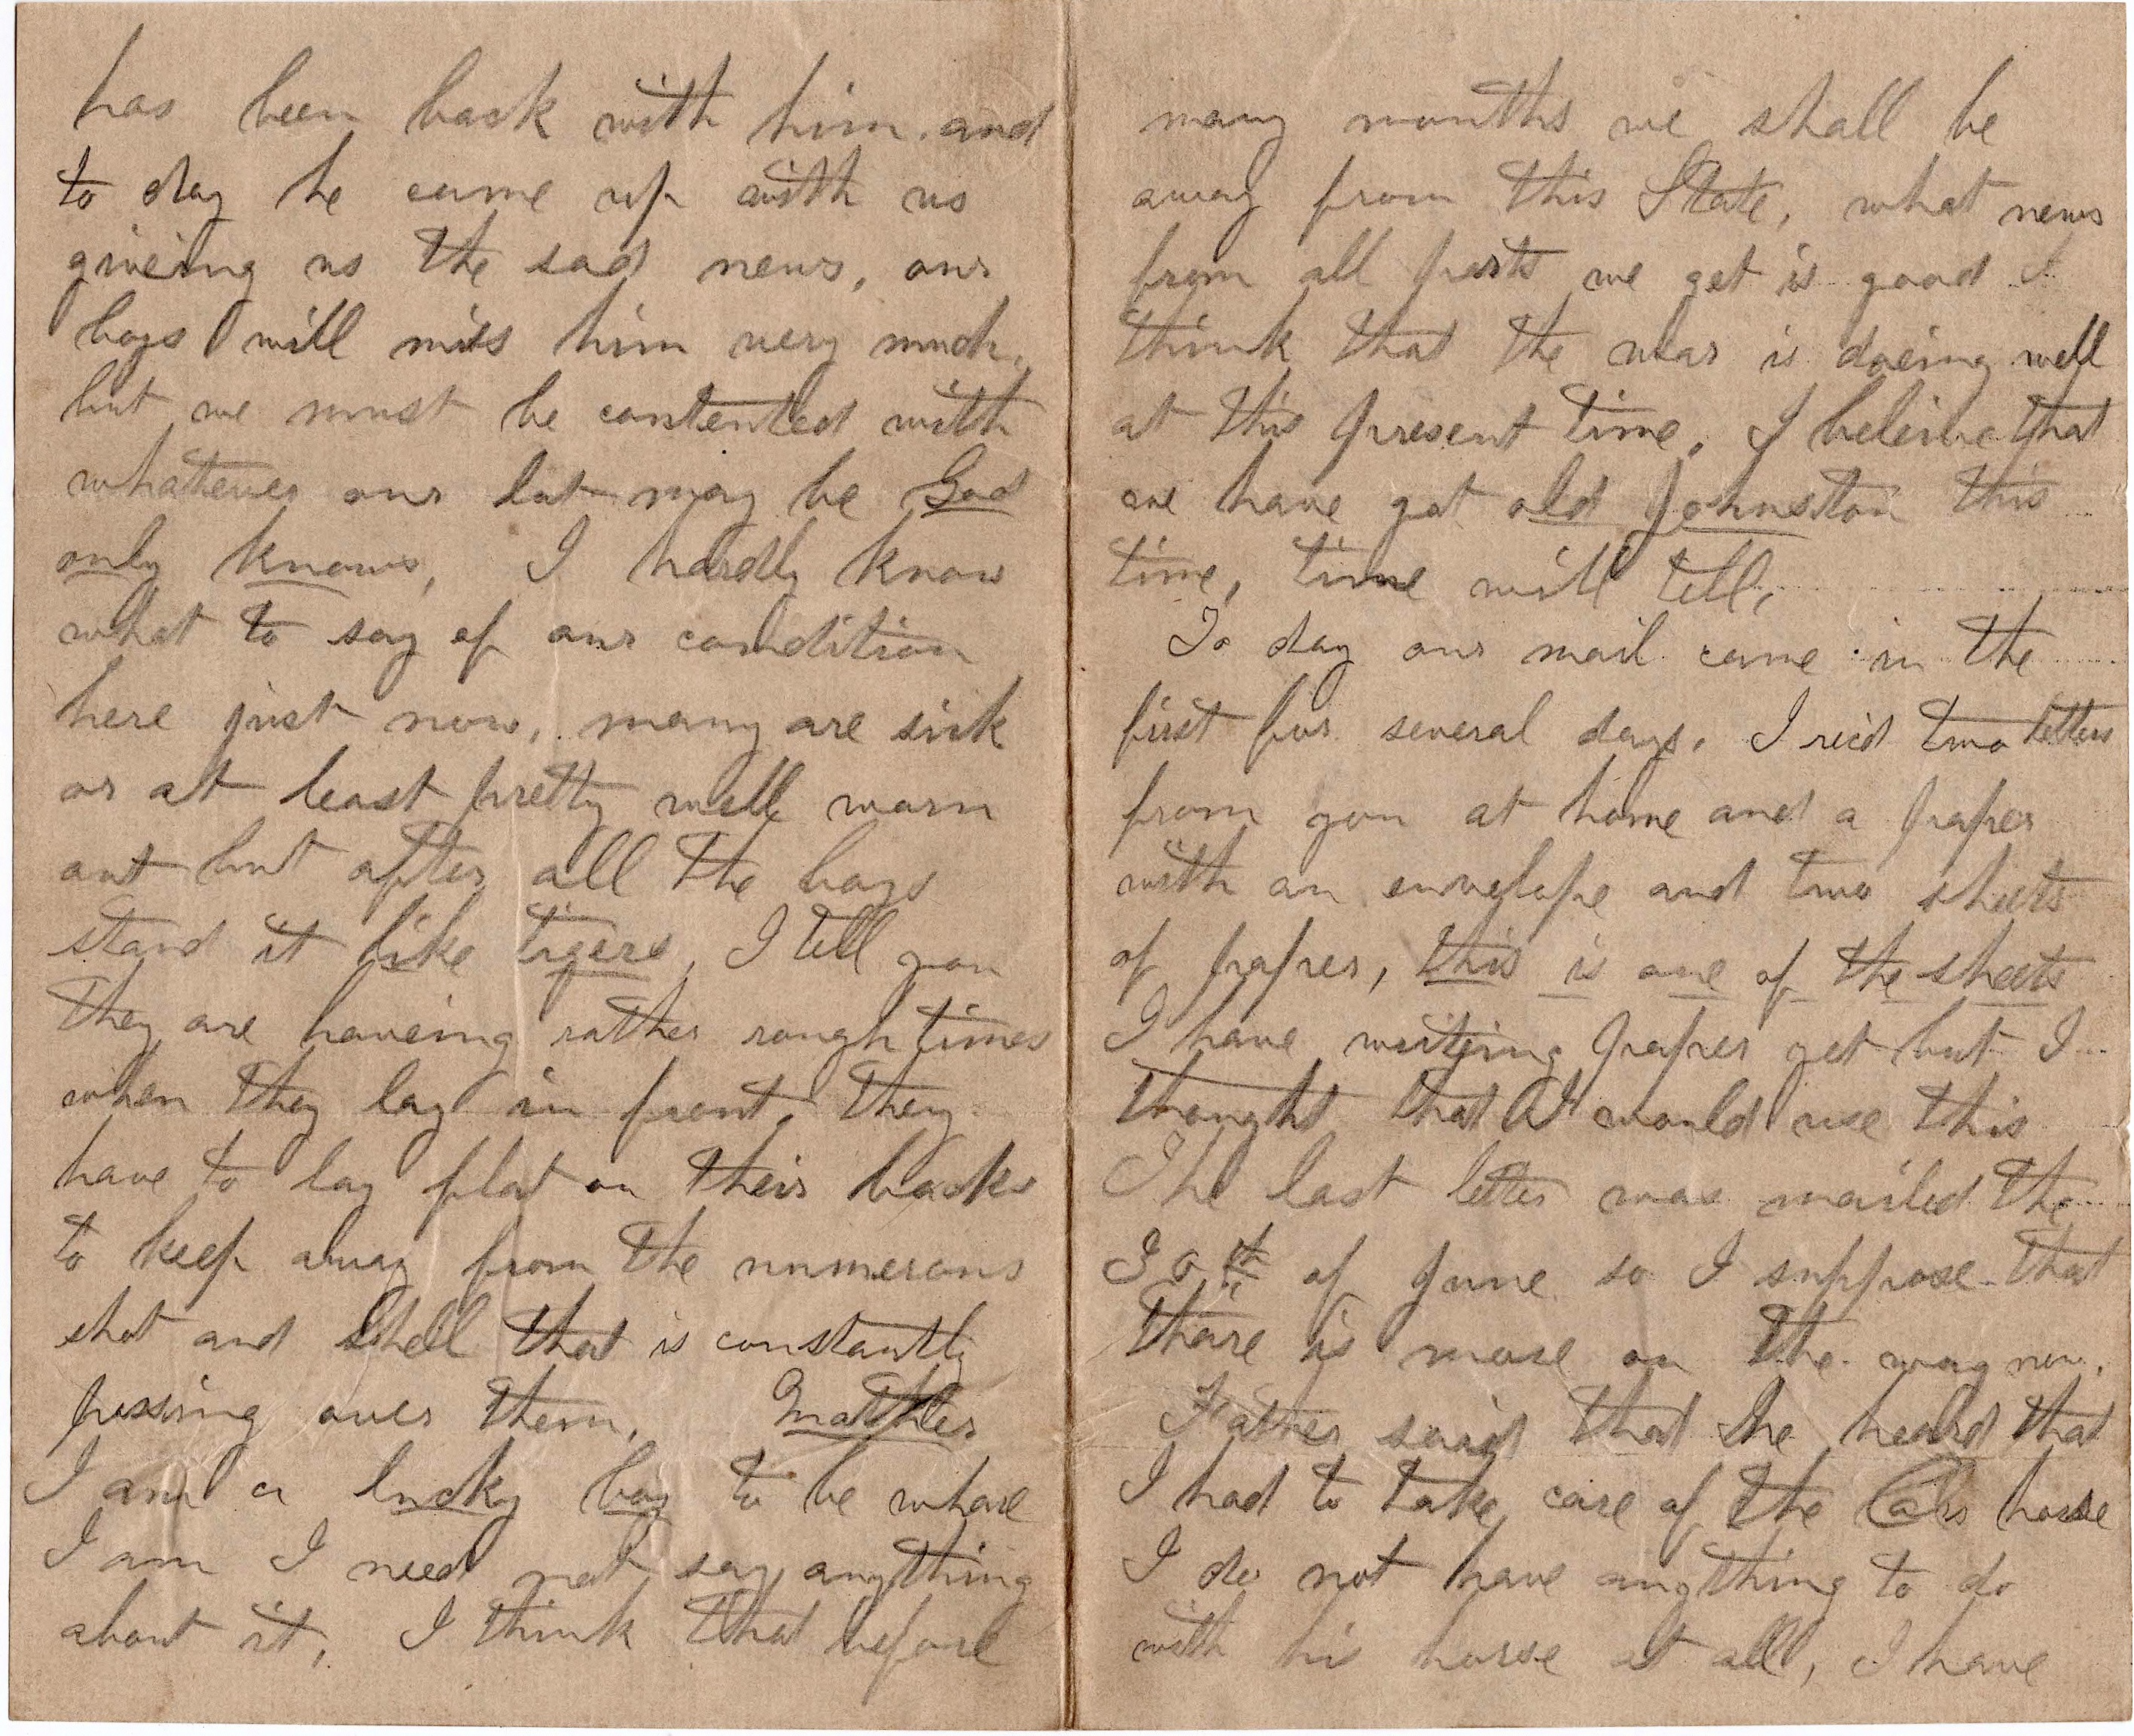 has been back with him. and
to day he came up with us
giveing us the sad news, our
boys will miss him very much.
but we must be contented with
whatever our lot may be God
only knows, I hardly know
what to say of our condition
here just now, many are sick
or at least pretty well worn
out but after all the boys
stand it like tigers, I tell you
they are haveing rather rough times
when they lay in front, they
have to lay flat on their backs
to keep away from the numerous
shot and shell that is constantly
passing over them. Mother
I am a lucky boy to be whare
I am I need not say anything
about it, I think that before
many months we shall be
away from this State, what news
from all parts we get is good I
think that the war is doeing well
at this present time. I beleive that
we have got old Johnston this
time, time will tell,
To day our mail came in the
first for several days. I rec'd two letters
from you at home and a paper
with an envelope and two sheets
of paper, this is one of the sheets
I have writeing paper yet but I
thought that I would use this
The last letter was mailed the
of June so I suppose that
thare is more on the way now.
Father said that he heard that
I had to take care of the Cols horse
I do not have anything to do
with his horse at all, I have